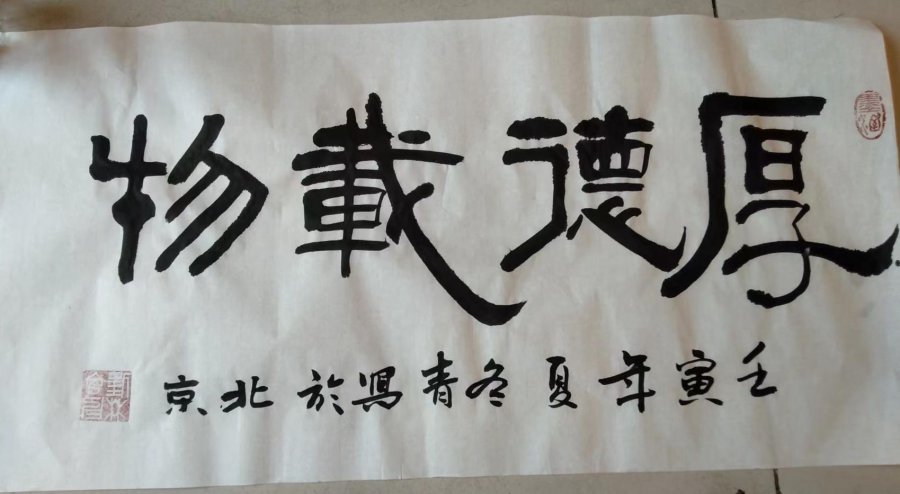 厚德載物
壬寅年夏冬青寫於北京